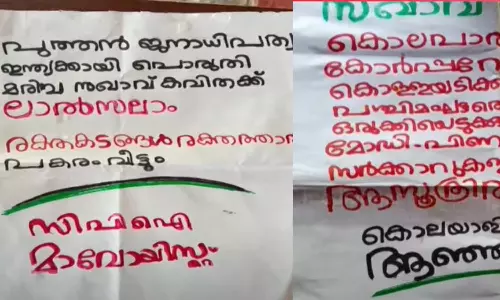 പുത്തൻ ജനാധിപത്യ
ഇന്ത്യക്കായി പൊരുതി
മരിച്ച സഖാവ് കവിതക്ക്
ലാൽസലാം
രക്തകടങ്ങൾ രക്തത്താ
പകരം വീട്ടും
സിപിഐ
മാവോയിസ്റ്റ്
സഖാവ്
കൊലപാ
കോർപ്പറേ
കൊള്ളയടിക്ക
ഒരുക്കിയെടുക്ക
മോഡി-പിണ
സർക്കാറുകള
ആസൂത്രി
കൊലയാള
ആഞ്ഞ